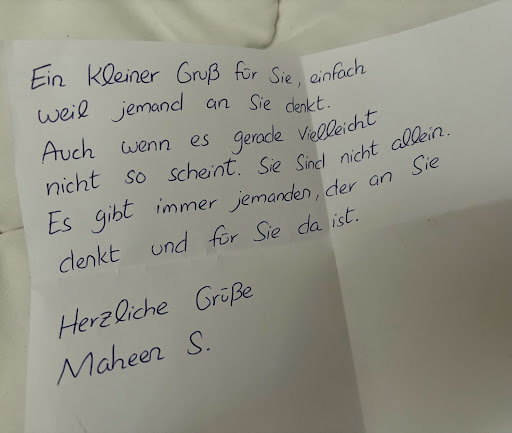 Ein kleiner Gruß für Sie, einfach
weil jemand an Sie denkt.
Auch wenn es gerade vielleicht
nicht so scheint. Sie sind nicht allein.
Es gibt immer jemanden, der an Sie
denkt und für Sie da ist.
Herzliche Grüße
Maheen S.